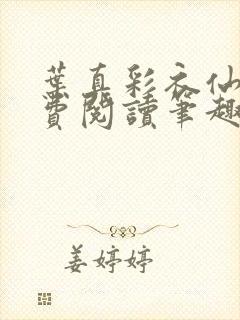 葉真彩衣仙
費閱讀筆趣
姜婷婷